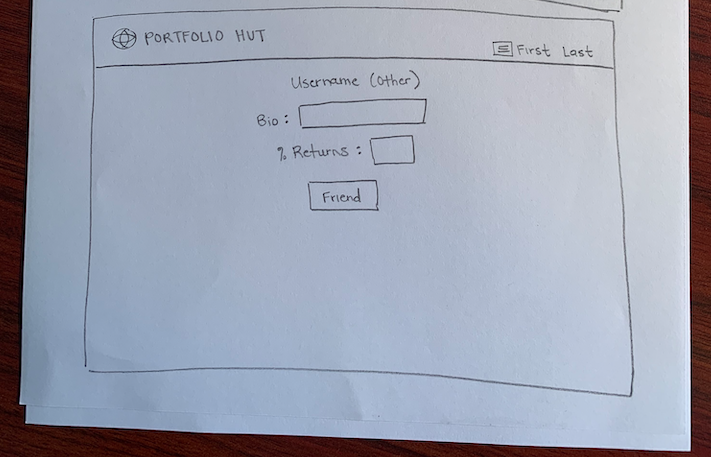 PORTFOLIO HUT
First Last
Username (Other)
Bio:
% Returns:
Friend